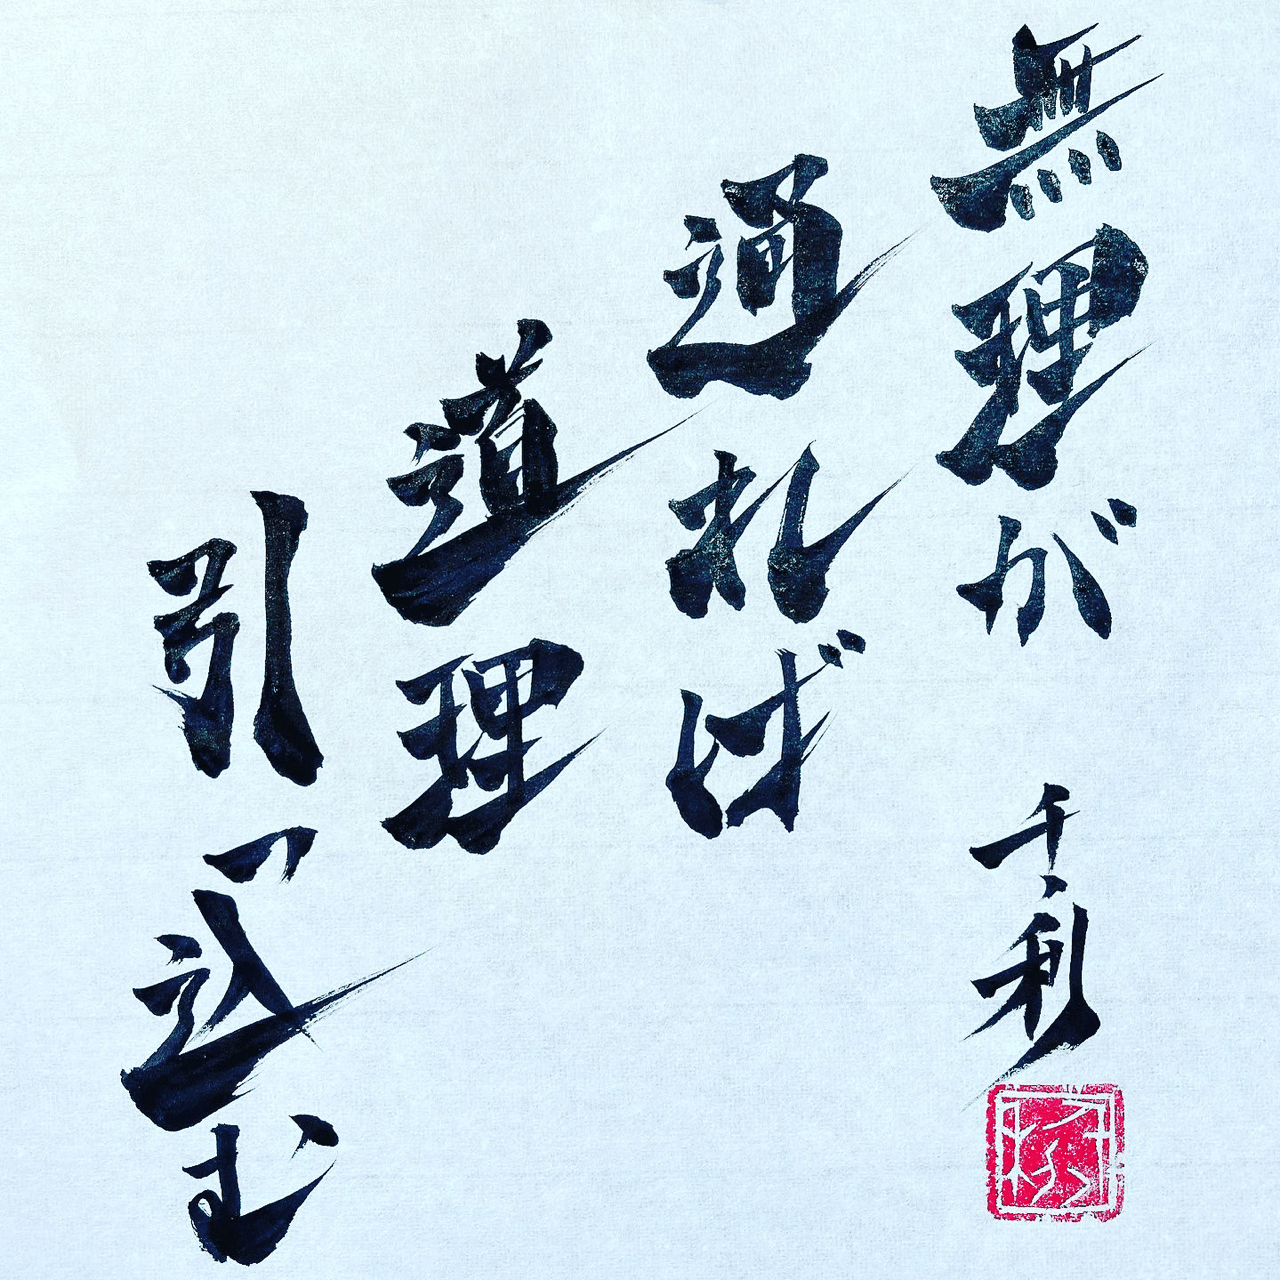 無理が
通れば
道理
引っ込む
千利